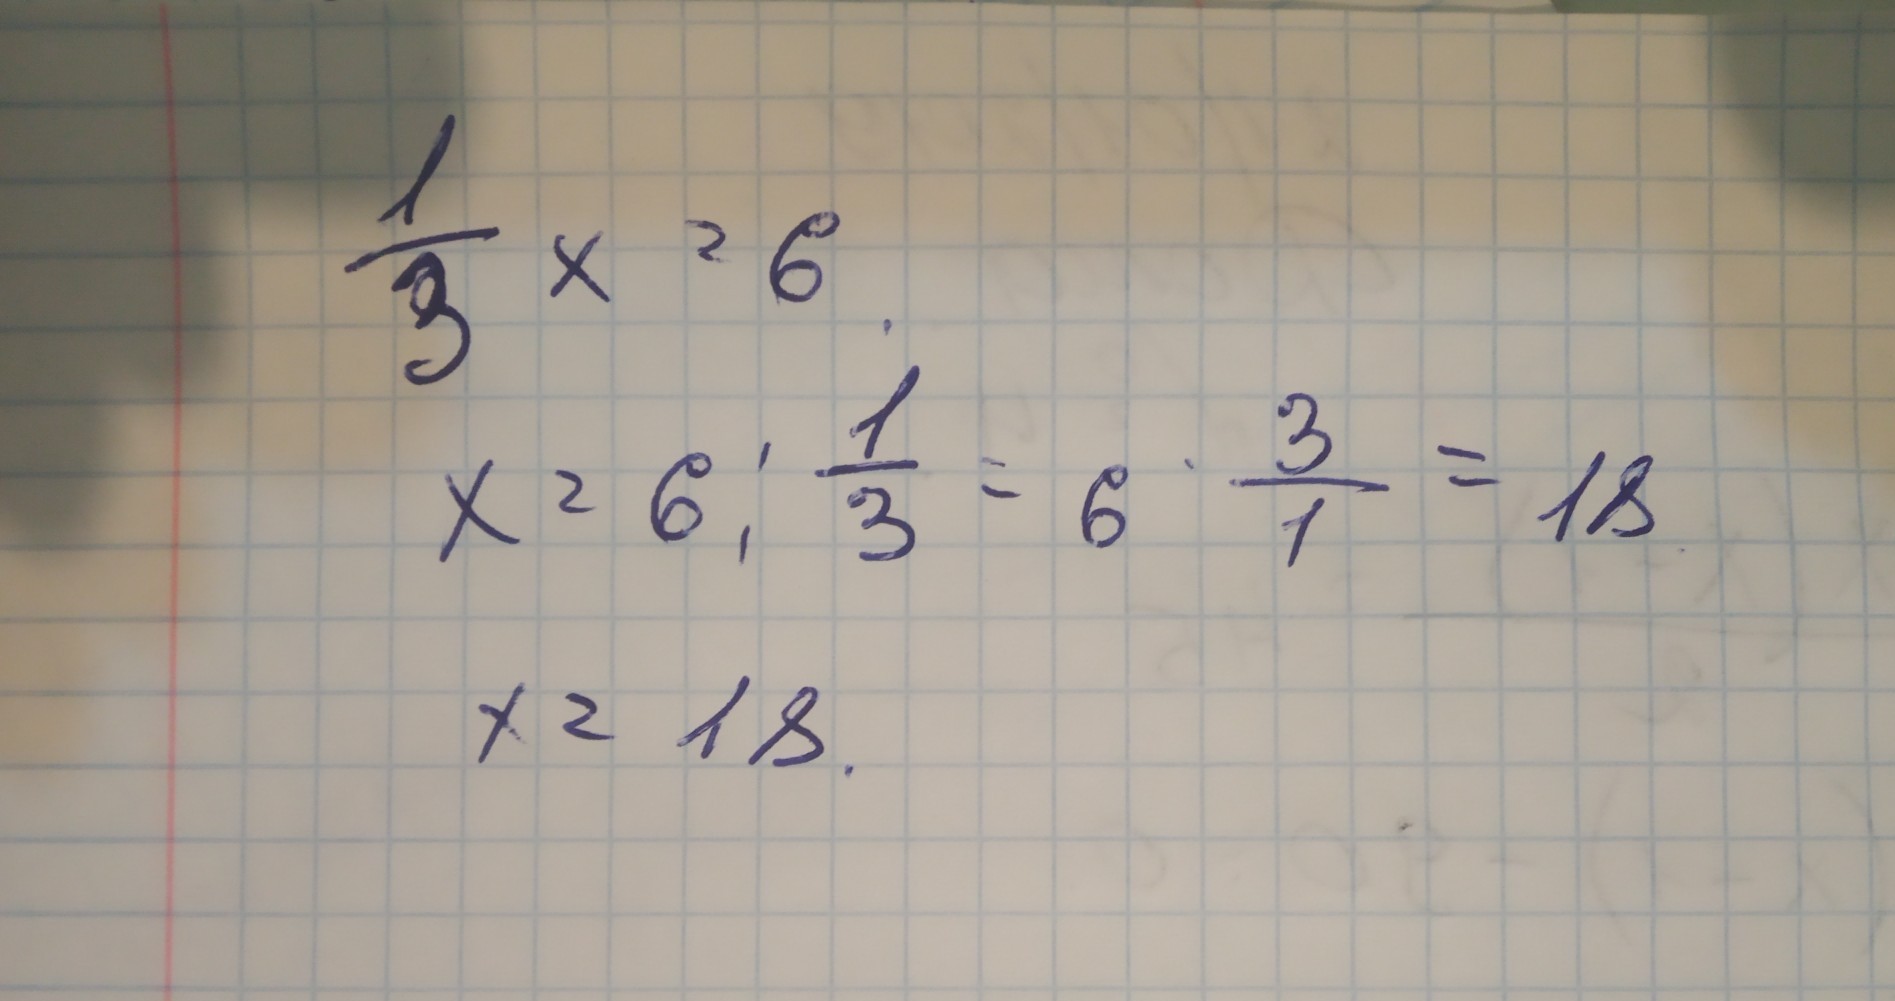 1/3 x = 6.
x = 6 : 1/3 = 6 · 3/1 = 18.
x = 18.